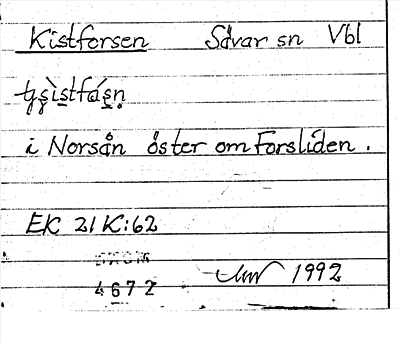 Kistforsen Sävar sn Vbl
i Norsån öster om Forsliden.
EK 21 K:62
4672
1992